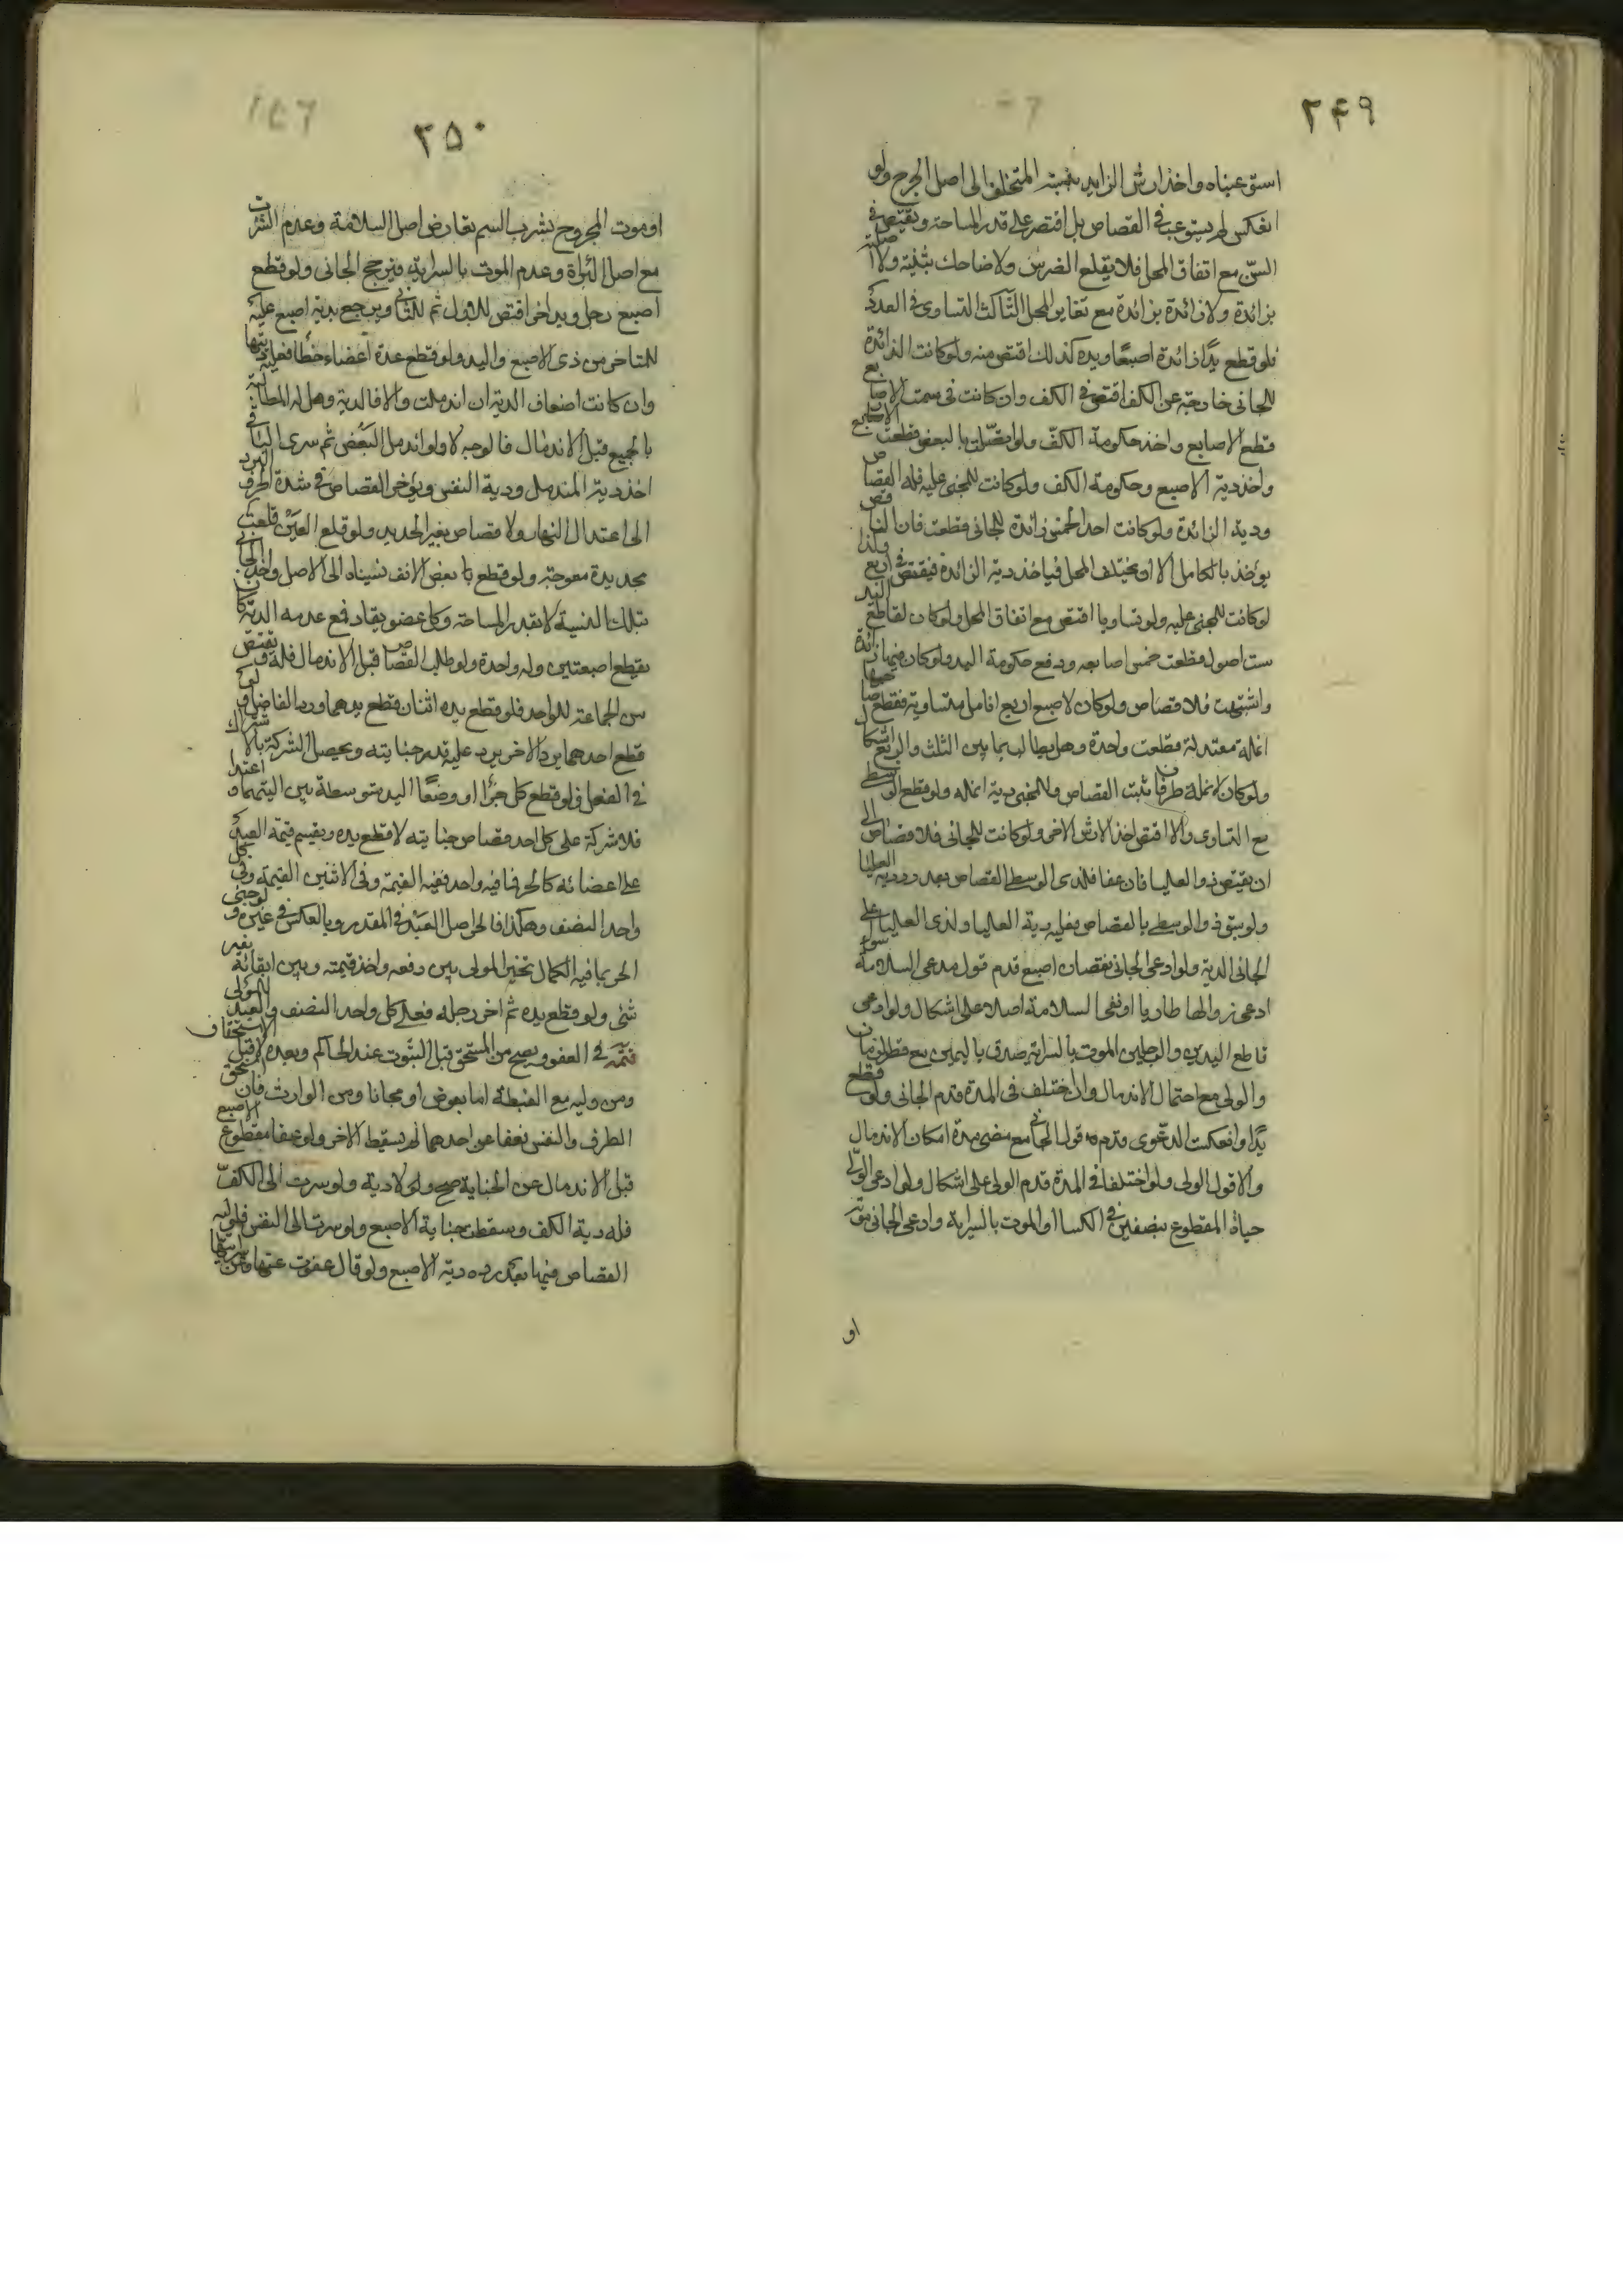 ٢۴٩
استوعبناه واخذ ارش الزايد بنسبة المتخلف الى اصل الجرح ولو
انعكس لم يستوعب في القصاص بل اقتصر على قدر المساحة ويقتص في
السن مع اتفاق المحل فلا يقلع الضرس ولا ضاحك بثنية ولا اصلية
بزائدة ولا زائدة بزائدة مع تغاير المحل الثالث التساوى في العدد
فلو قطع يدا زائدة اصبعا ويده كذلك اقتص منه ولو كانت الزائدة
للجانى خارجة عن الكف اقتص في الكف وان كانت في سمت الاصابع
قطع الاصابع واخذ حكومة الكف ولو اتصلت بالبعض قطعت الاصابع
واخذ دية الاصبع وحكومة الكف ولو كانت للمجنى عليه فله القصاص
ودية الزائدة ولو كانت احد الخمس زائدة للجانى قطعت فان الناقص
يوخذ بالكامل الا ان يختلف المحل فياخذ دية الزائدة فيقتص في اربع وكذا
لو كانت للمجنى عليه ولو تساويا اقتص مع اتفاق المحل ولو كان لقاطع اليد
ست اصول قطعت خمس اصابعه ودفع حكومة اليد ولو كان فيها زائدة
واشتبهت فلا قصاص ولو كان لاصبع اربع انامل متساوية فقطع صاحبها
انملة معتدلة قطعت واحدة وهل يطالب بما بين الثلث والربع اشكال
ولو كان لانملة طرفان ثبت القصاص وللمجنى دية انملة ولو قطع الوسطى
مع التساوى والا اقتص اخذ الارش الاخر ولو كانت للجانى فلا قصاص الى
ان يقتص ذو العليا فان عفا فلذى الوسطى القصاص بعد رد دية العليا
ولو سبق ذو الوسطى بالقصاص فعليه دية العليا ولذى العليا على
الجانى الدية ولو ادعى الجانى نقصان اصبع قدم قول مدعى السلامة سواء
ادعى زوالها طاريا او نفى السلامة اصلا على اشكال ولو ادعى
قاطع اليدين والرجلين الموت بالسراية صدق باليمين مع قصر الزمان
والولى مع احتمال الاندمال وان اختلف في المدة قدم الجانى ولو قطع
يدا وانعكست الدعوى قدم قول الجانى مع مضى مدة امكان الاندمال
والا قول الولى ولو اختلفا في المدة قدم الولى على اشكال ولو ادعى الولى
حياة المقطوع بنصفين في الكساء او الموت بالسراية وادعى الجانى موته
او
٢۵٠
او موت المجروح بشرب السم تعارض اصل السلامة وعدم الشرب
مع اصل البراءة وعدم الموت بالسراية فيرجح الجانى ولو قطع
اصبع رجل ويد اخر اقتص للاول ثم للثانى ويرجع بدية اصبع عليه
للمتاخر من ذى الاصبع واليد ولو قطع عدة اعضاء خطا فعليه ديتها
وان كانت اضعاف الدية ان اندملت والا فالدية وهل له المطالبة
بالجميع قبل الاندمال فالوجه لا ولو اندمل البعض ثم سرى الباقى
اخذ دية المندمل ودية النفس ويؤخر القصاص في شدة الحر والبرد
الى اعتدال النهار ولا قصاص بغير الحديد ولو قلع العين قلعت
بحديدة معوجة ولو قطع بعض الانف نسبناه الى الاصل واخذ من الجانى
بتلك النسبة لا بقدر المساحة وكل عضو يقاد فمع عدمه الدية كان
يقطع اصبعين وله واحدة ولو طلب القصاص قبل الاندمال فله ويقتص
من الجماعة للواحد فلو قطع يده اثنان قطع يدهما ورد الفاضل ولو
قطع احدهما يرد الاخر يرد عليه قدر جنايته ويحصل الشركة بالاشتراك
في الفعل فلو قطع كل جزءا او وضعا اليد متوسطة بين التيهما واعتمدا
فلا شركة على كل احد قصاص جنايته لا قطع يده ويقسم قيمة العبد
على اعضائه كالحر فما فيه واحد ففيه القيمة وفي الاثنين القيمة وفي كل
واحد النصف وهكذا فالحر اصل العبد في المقدر وبالعكس في غيره ولو جنى
الحر بما فيه الكمال تخير المولى بين دفعه واخذ قيمته وبين ابقائه بغير
شئ ولو قطع يده ثم اخر رجله فعلى كل واحد النصف والعبد للمولى
تتمة في العفو ويصح من المستحق قبل الثبوت عند الحاكم وبعده لا قبل الاستحقاق
ومن وليه مع الغبطة اما بعوض او مجانا ومن الوارث فان استحق
الطرف والنفس فعفا عن احدهما لم يسقط الاخر ولو عفا مقطوع الاصبع
قبل الاندمال عن الجناية صح ولا دية ولو سرت الى الكف
فله دية الكف وسقطت جناية الاصبع ولو سرت الى النفس فلوليه
القصاص فيها بعد رده دية الاصبع ولو قال عفوت عنها وعن سرايتها